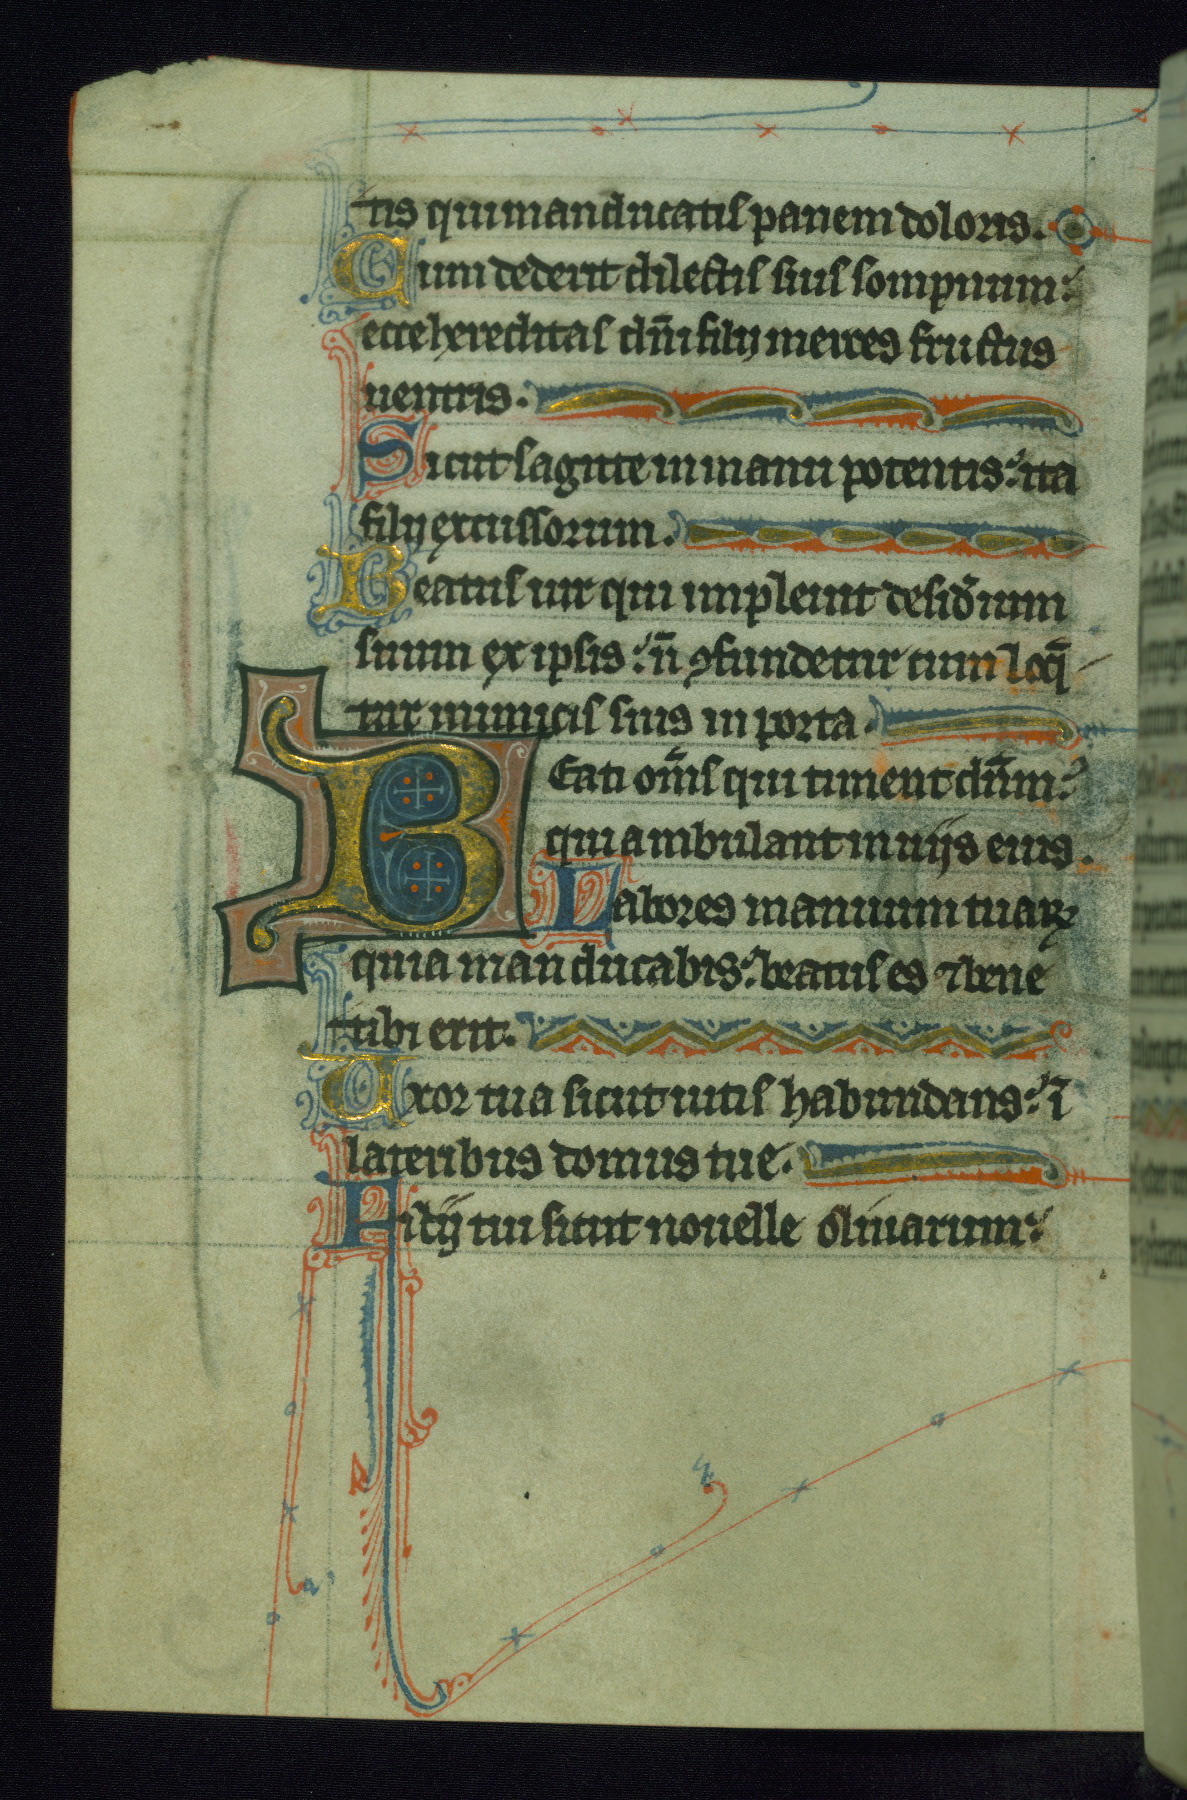 tis qui manducatis panem doloris.
Cum dederit dilectis suis sompnum:
ecce hereditas dn̄i filij merces fructus
uentris.
Sicut sagitte in manu potentis: ita
filij excussorum.
Beatus uir qui impleuit desid̄ium
suum ex ipsis: n̄ ꝯfundetur cum loq̄
tur inimicis suis in porta.
BEati om̄s qui timent dn̄m:
qui ambulant in uijs eius.
Labores manuum tuaꝝ
quia manducabis: beatus es ⁊ bene
tibi erit.
Uxor tua sicut uitis habundans: ī
lateribus domus tue.
Filij tui sicut nouelle oliuarum: